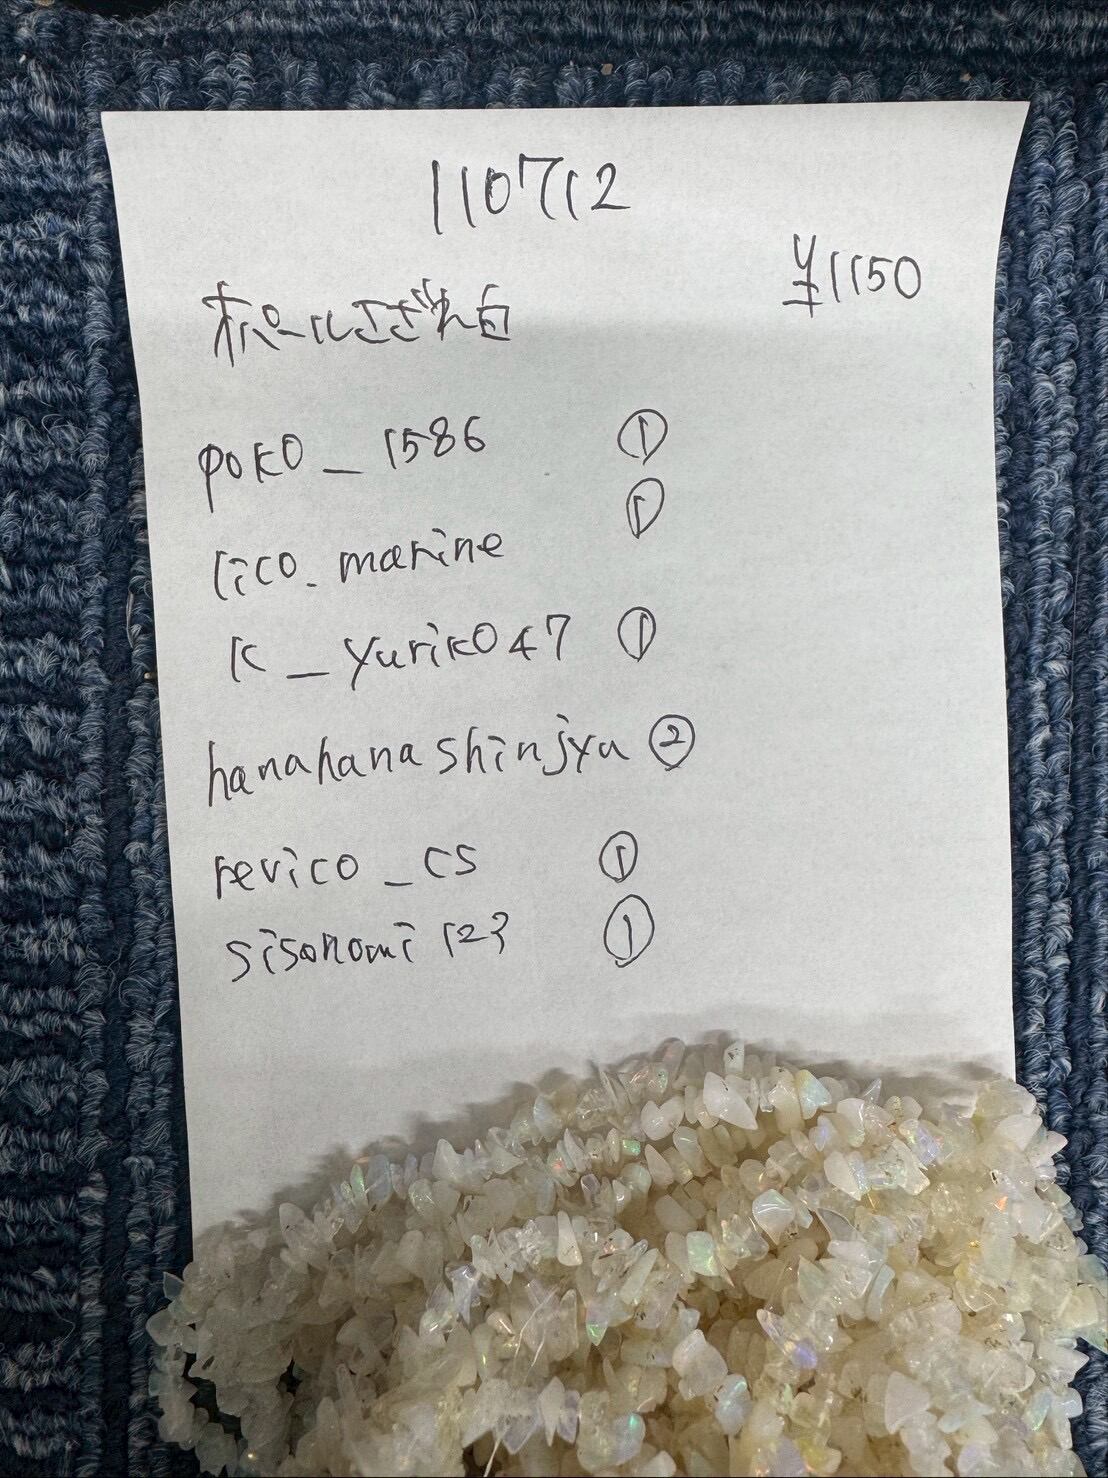 110712
¥1150
オパールさざれ白
poko_1586 ①
rico_marine ①
k_yuriko47 ①
hanahanashinjyu ②
revico_cs ①
sisonomi123 ①